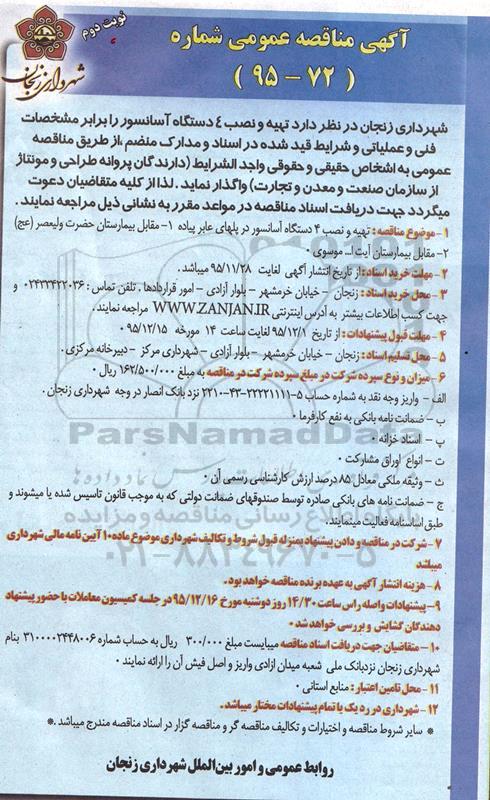 نوبت دوم
شهرداری زنجان
آگهی مناقصه عمومی شماره
( ۷۲ - ۹۵ )
شهرداری زنجان در نظر دارد تهیه و نصب ٤ دستگاه آسانسور را برابر مشخصات
فنی و عملیاتی و شرایط قید شده در اسناد و مدارک منضم ،از طریق مناقصه
عمومی به اشخاص حقیقی و حقوقی واجد الشرایط (دارندگان پروانه طراحی و مونتاژ
از سازمان صنعت و معدن و تجارت) واگذار نماید . لذا از کلیه متقاضیان دعوت
میگردد جهت دریافت اسناد مناقصه در مواعد مقرر به نشانی ذیل مراجعه نمایند .
۱- موضوع مناقصه : تهیه و نصب ۴ دستگاه آسانسور در پلهای عابر پیاده ۱- مقابل بیمارستان حضرت ولیعصر (عج)
۲- مقابل بیمارستان آیت ا... موسوی .
۲- مهلت خرید اسناد : از تاریخ انتشار آگهی لغایت ۹۵/۱۱/۲۸ میباشد .
۳- محل خرید اسناد : زنجان - خیابان خرمشهر - بلوار آزادی - امور قراردادها . تلفن تماس : ۰۲۴۳۳۴۲۲۰۳۶ و
جهت کسب اطلاعات بیشتر به آدرس اینترنتی WWW.ZANJAN.IR مراجعه نمایند .
۴- مهلت قبول پیشنهادات : از تاریخ ۹۵/۱۲/۱ لغایت ساعت ۱۴ مورخه ۹۵/۱۲/۱۵ .
۵- محل تسلیم اسناد : زنجان - خیابان خرمشهر - بلوار آزادی - شهرداری مرکز - دبیرخانه مرکزی .
۶- میزان و نوع سپرده شرکت در مبلغ سپرده شرکت در مناقصه به مبلغ ۱۶۲/۵۰۰/۰۰۰ ریال .
الف - واریز وجه نقد به شماره حساب ۵-۲۲۲۲۱۱۱۱-۴۳-۲۲۱۰ نزد بانک انصار در وجه شهرداری زنجان .
ب - ضمانت نامه بانکی به نفع کارفرما .
پ - اسناد خزانه .
ت - انواع اوراق مشارکت .
ث - وثیقه ملکی معادل ۸۵ درصد ارزش کارشناسی رسمی آن .
ج - ضمانت نامه های بانکی صادره توسط صندوقهای ضمانت دولتی که به موجب قانون تاسیس شده یا میشوند و
طبق اساسنامه فعالیت مینمایند.
۷- شرکت در مناقصه و دادن پیشنهاد بمنزله قبول شروط و تکالیف شهرداری موضوع ماده ۱۰ آیین نامه مالی شهرداری
میباشد
۸- هزینه انتشار آگهی به عهده برنده مناقصه خواهد بود.
۹- پیشنهادات واصله راس ساعت ۱۴/۳۰ روز دوشنبه مورخ ۹۵/۱۲/۱۶ در جلسه کمیسیون معاملات با حضور پیشنهاد
دهندگان گشایش و بررسی خواهد شد .
۱۰- متقاضیان جهت دریافت اسناد مناقصه میبایست مبلغ ۳۰۰/۰۰۰ ریال به حساب شماره ۳۱۰۰۰۰۲۴۴۸۰۰۶ بنام
شهرداری زنجان نزد بانک ملی شعبه میدان ازادی واریز و اصل فیش آن را ارائه نمایند .
۱۱- محل تامین اعتبار : منابع استانی .
۱۲- شهرداری در رد یک یا تمام پیشنهادات مختار میباشد .
* سایر شروط مناقصه و اختیارات و تکالیف مناقصه گر و مناقصه گزار در اسناد مناقصه مندرج میباشد . *
روابط عمومی و امور بین‌الملل شهرداری زنجان
ParsNamadData
۰۲۱-۸۸۳۴۹۶۷۰-۵